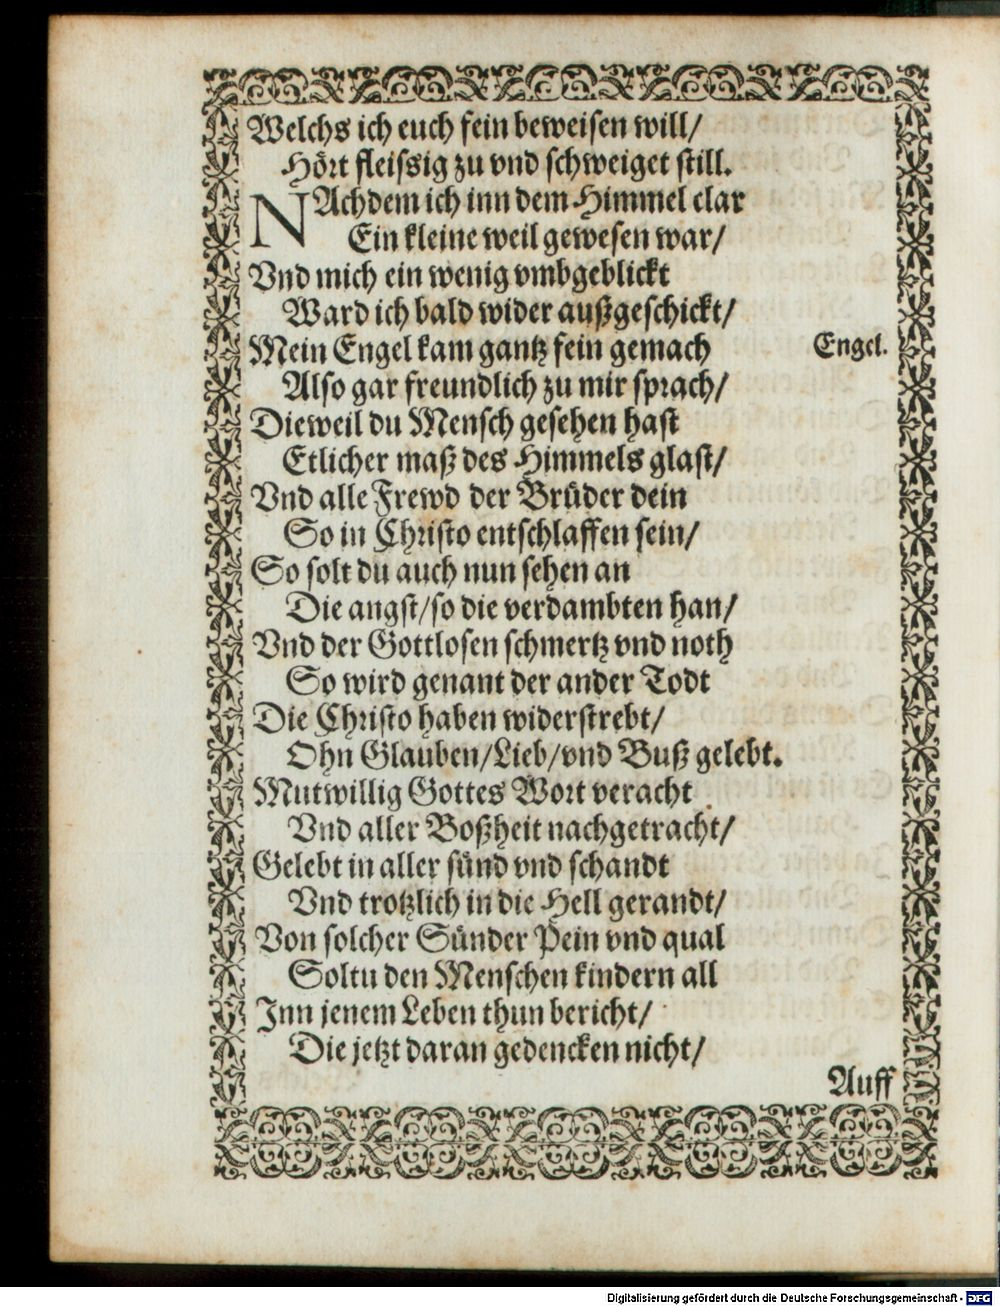 Welchs ich euch fein beweisen will/
Hört fleissig zu vnd schweiget still.
NAchdem ich inn dem Himmel clar
Ein kleine weil gewesen war/
Vnd mich ein wenig vmbgeblickt
Ward ich bald wider außgeschickt/
Mein Engel kam gantz fein gemach
Engel.
Also gar freundlich zu mir sprach/
Dieweil du Mensch gesehen hast
Etlicher maß des Himmels glast/
Vnd alle Frewd der Brüder dein
So in Christo entschlaffen sein/
So solt du auch nun sehen an
Die angst/so die verdambten han/
Vnd der Gottlosen schmertz vnd noth
So wird genant der ander Todt
Die Christo haben widerstrebt/
Ohn Glauben/Lieb/vnd Buß gelebt.
Mutwillig Gottes Wort veracht
Vnd aller Boßheit nachgetracht/
Gelebt in aller sünd vnd schandt
Vnd trotzlich in die Hell gerandt/
Von solcher Sünder Pein vnd qual
Soltu den Menschen kindern all
Inn jenem Leben thun bericht/
Die jetzt daran gedencken nicht/
Auff
Digitalisierung gefördert durch die Deutsche Forschungsgemeinschaft - DFG